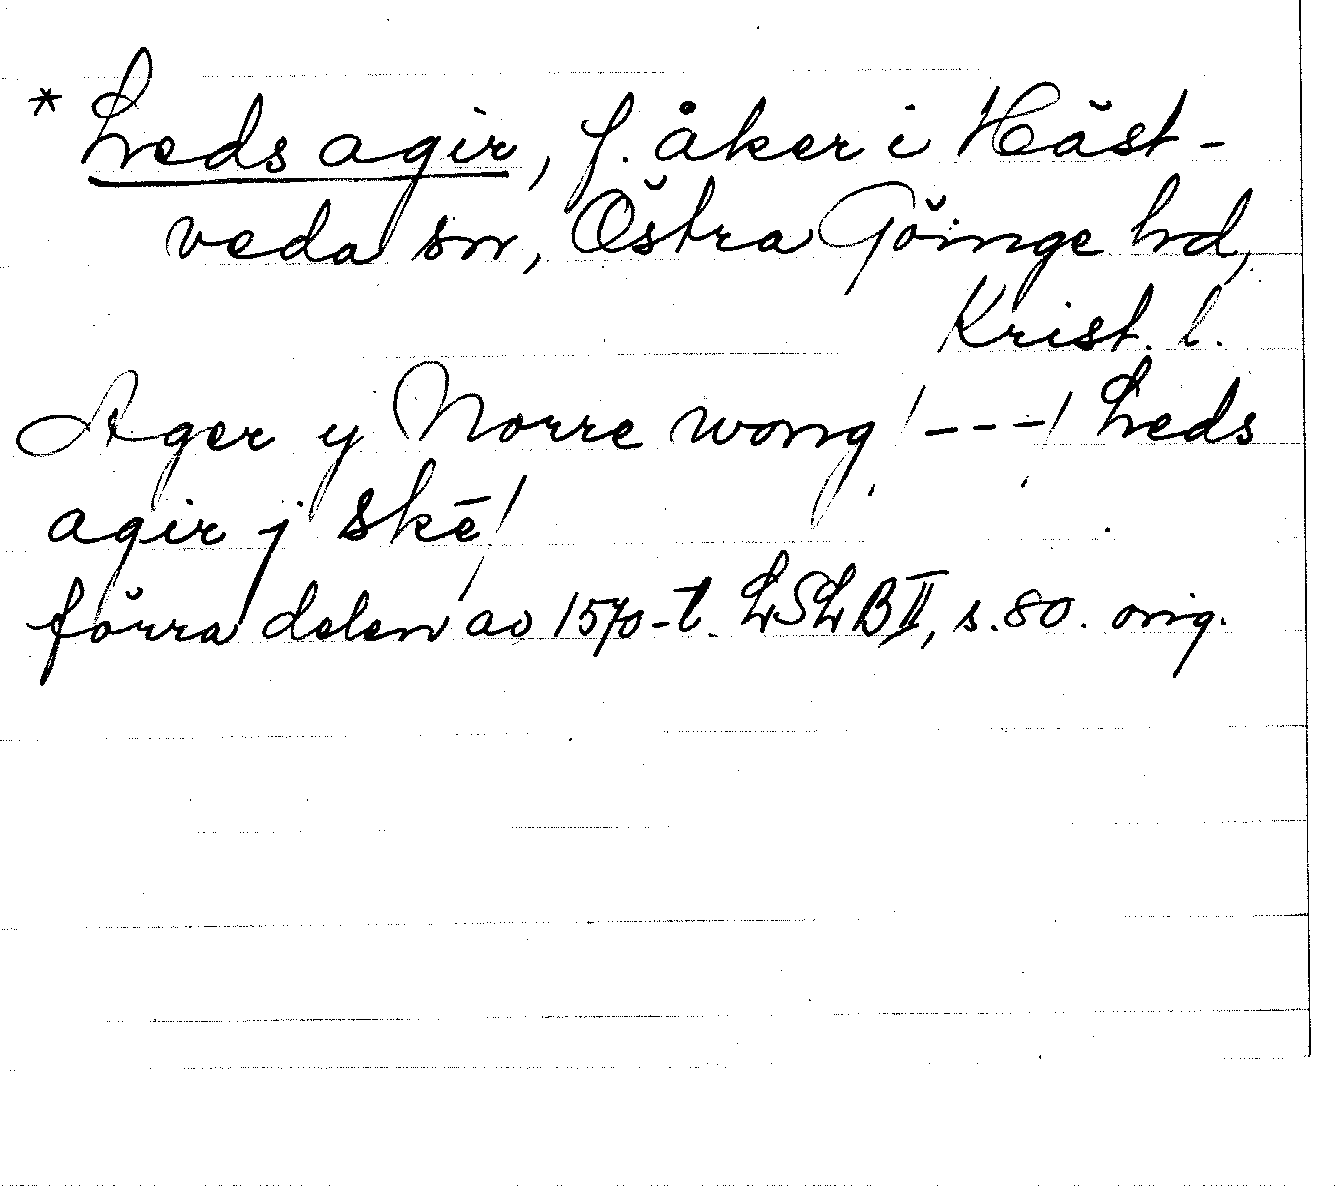 * Leds agir, f. åker i Häst-
veda sn, Östra Göinge hd,
Krist. l.
Ager y Norre wong /---/ Leds
agir j skē/
förra delen av 1570-t. LSLB II, s. 80. orig.